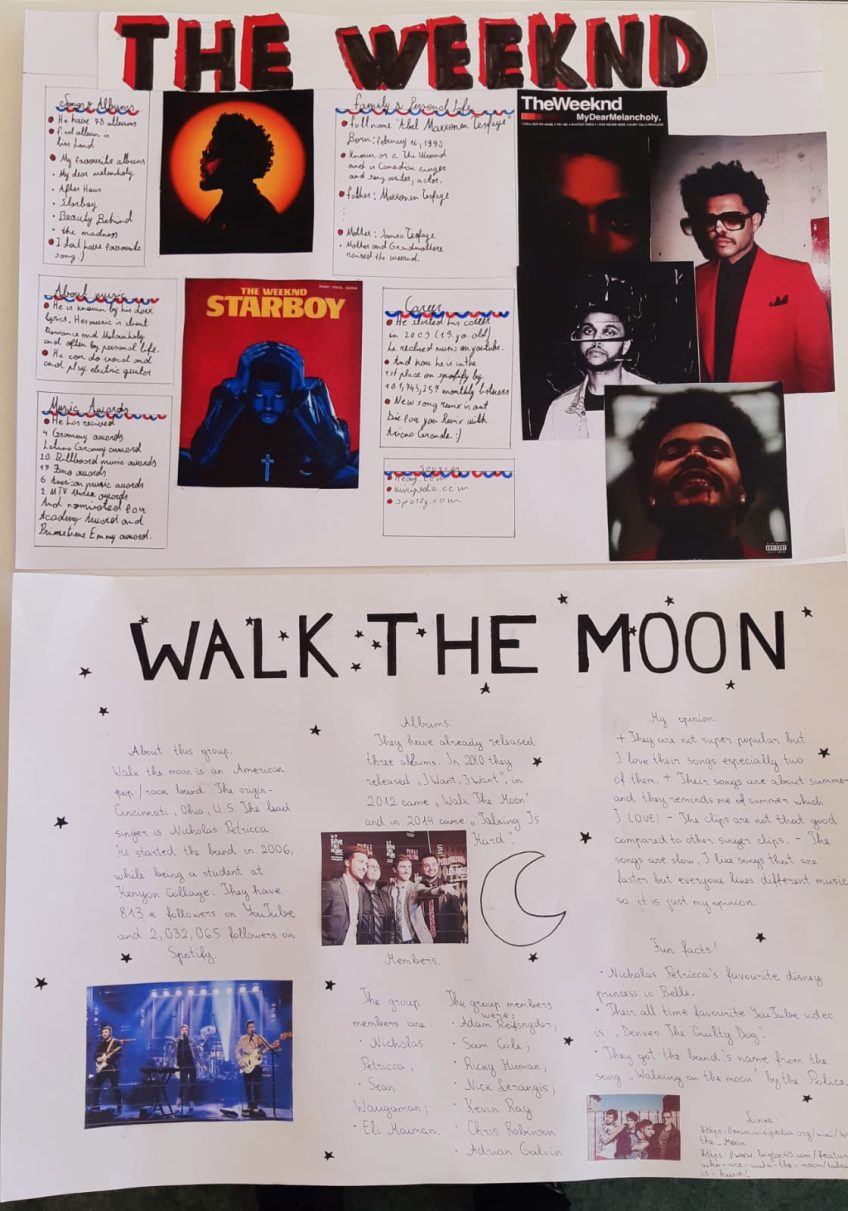 THE WEEKND
Songs & Albums
He have 23 albums
First album is
My favourite albums
My dear melancholy
After Hour
Starboy
Beauty Behind
the madness
I dont have favourite
song:)
Family & Personal Life
full name "Abel Makkonen Tesfaye"
Born: february 16, 1990
Known as a The Weeknd
and is Canadian singer
and song writer, actor.
father: Makkonen Tesfaye
Mother: Tesfaye
Mother and Grandmothere
raised the weeknd.
TheWeeknd
MyDearMelancholy,
About music
He is known by his dark
lyrics. Her music is about
Romance and Melancholy
and often by personal life.
He can do vocal and
and play electric guiter
THE WEEKND
STARBOY
Career
He started his career
in 2009 (19 y.o. old)
he music on youtube.
And now he is in the
1st place on spotify by
monthly listeners
New song remix is out
Die for you Remix with
Grande :)
Music Awards
He has recived
4 Grammy awards
Latino Grammy award
20 Billboard music awards
17 Juno awards
6 American music awards
2 MTV Video awards
And nominated for
Academy Award and
Primetime Emmy award.
Sources
wikipedia.com
spotify.com
WALK THE MOON
About this group.
Walk the moon is an American
pop/rock band. The origin -
Cincinnati, Ohio, U.S. The lead
singer is Nicholas Petricca.
He started the band in 2006,
while being a student at
Kenyon Collage. They have
813 k followers on YouTube
and 2,032,065 followers on
Spotify
Albums.
They have already released
three albums. In 2010 they
released „I Want, I Want", in
2012 came „Walk The Moon"
and in 2014 came „Talking Is
Hard".
Members.
The group
members are:
· Nicholas
Petricca;
· Sean
Waugaman;
· Eli Maiman.
The group members
were:
· Adam Reifsnyder;
· Sam Cole;
· Ricky Human;
· Nick Lerangis;
· Kevin Ray
· Chris Robinson
· Adrian Galvin
My opinion.
+ They are not super popular but
I love their songs especially two
of them. + Their songs are about summer
and they reminds me of summer which
I LOVE! - The clips are not that good
compared to other singer clips. - The
songs are slow, I like songs that are
faster but everyone likes different music
so it is just my opinion.
Fun facts!
· Nicholas Petricca's favourite disney
princess is Belle.
· Their all time favourite YouTube video
is „Denver The Guilty Dog".
· They got the band's name from the
song „Walking on the moon" by the Police.
Links:
the_Moon
who-are-walk-the-moon/talking
is-hard/.